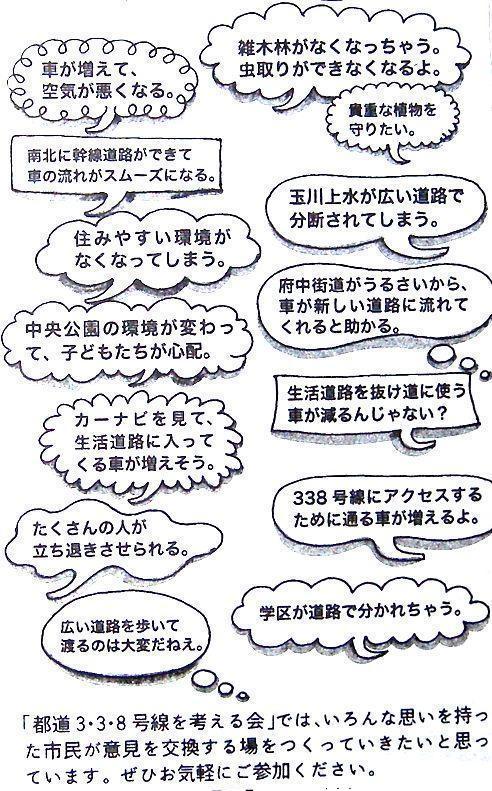 車が増えて、
空気が悪くなる。
雑木林がなくなっちゃう。
虫取りができなくなるよ。
貴重な植物を
守りたい。
南北に幹線道路ができて
車の流れがスムーズになる。
玉川上水が広い道路で
分断されてしまう。
住みやすい環境が
なくなってしまう。
府中街道がうるさいから、
車が新しい道路に流れて
くれると助かる。
中央公園の環境が変わっ
て、子どもたちが心配。
生活道路を抜け道に使う
車が減るんじゃない?
カーナビを見て、
生活道路に入って
くる車が増えそう。
338号線にアクセスする
ために通る車が増えるよ。
たくさんの人が
立ち退きさせられる。
学区が道路で分かれちゃう。
広い道路を歩いて
渡るのは大変だねえ。
「都道3・3・8号線を考える会」では、いろんな思いを持っ
た市民が意見を交換する場をつくっていきたいと思っ
ています。ぜひお気軽にご参加ください。